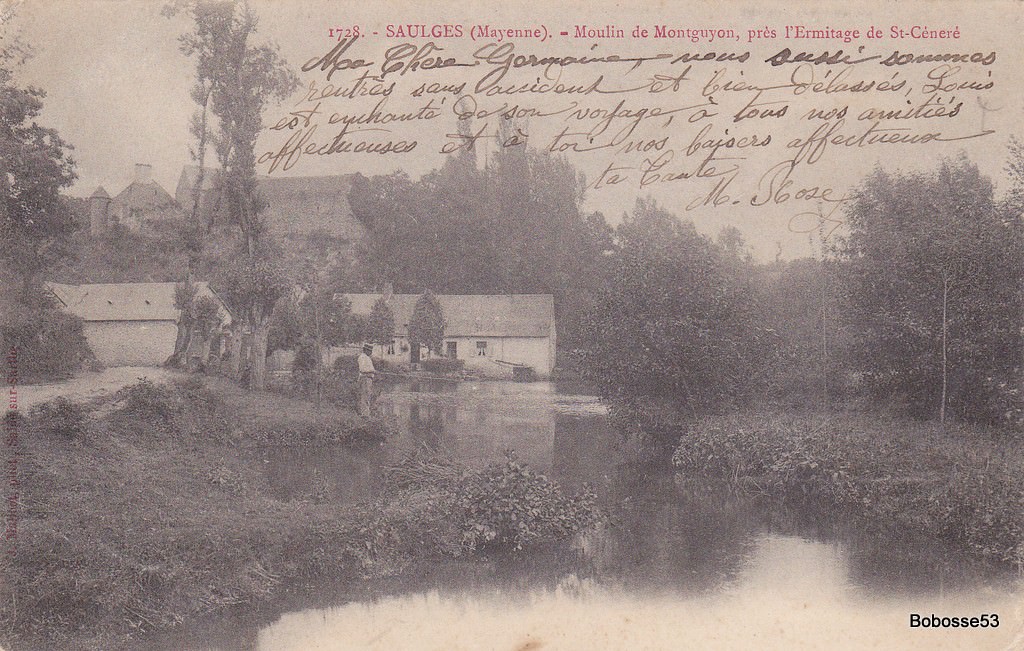 1728. - SAULGES (Mayenne). - Moulin de Montguyon, près l'Ermitage de St-Céneré
Ma Chère Germaine, - nous aussi sommes
rentrés sans accident et bien délassés, Louis
est enchanté de son voyage, à tous nos amitiés
affectueuses et à toi nos baisers affectueux
ta Tante
M. Rose
Sablé-sur-Sarthe
Bobosse53